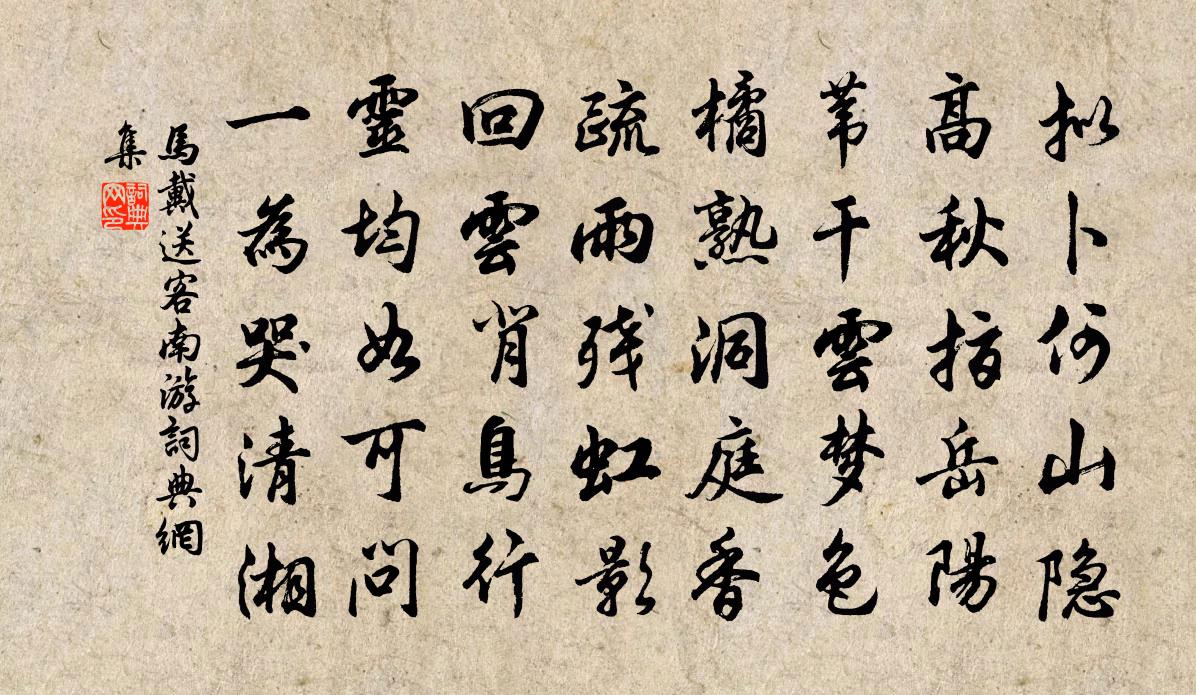 拟卜何山隐
高秋指岳阳
苇干雲梦色
橘熟洞庭香
疏雨残虹影
回雲背鳥行
靈均如可問
一為哭清湘
馬戴送客南游詞典網
集
詞典网印